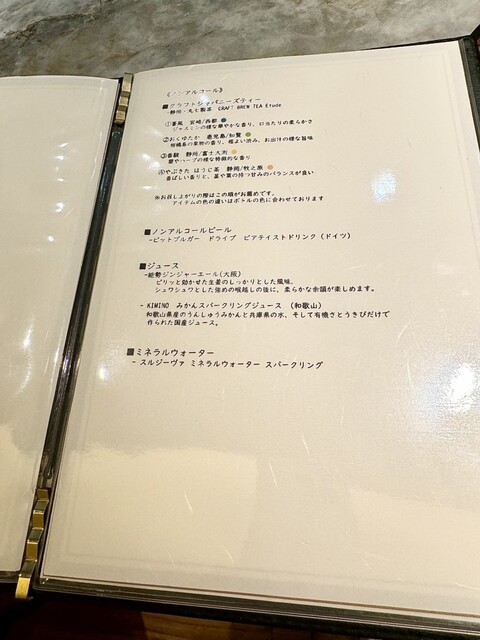 《ノンアルコール》
■クラフトジャパニーズティー
-静岡・丸七製茶 CRAFT BREW TEA Etude
①蒼風 宮崎/西都
ジャスミンの様な華やかな香り、口当たりの柔らかさ
②おくゆたか 鹿児島/知覧
柑橘系の果物の香り、程よい渋み、お出汁の様な旨味
③香駿 静岡/富士大渕
蘭やハーブの様な特徴的な香り
④やぶきた ほうじ茶 静岡/牧之原
香ばしい香りと、茎や葉の持つ甘みのバランスが良い
※お召し上がりの際はこの順がお薦めです。
アイテムの色の違いはボトルの色に合わせております
■ノンアルコールビール
-ビットブルガー ドライブ ビアテイストドリンク (ドイツ)
■ジュース
-能勢ジンジャーエール(大阪)
ピリッと効かせた生姜のしっかりとした風味。
シュワシュワとした強めの喉越しの後に、柔らかな余韻が楽しめます。
- KIMINO みかんスパークリングジュース (和歌山)
和歌山県産のうんしゅうみかんと兵庫県の水、そして有機さとうきびだけで
作られた国産ジュース。
■ミネラルウォーター
- スルジーヴァ ミネラルウォーター スパークリング